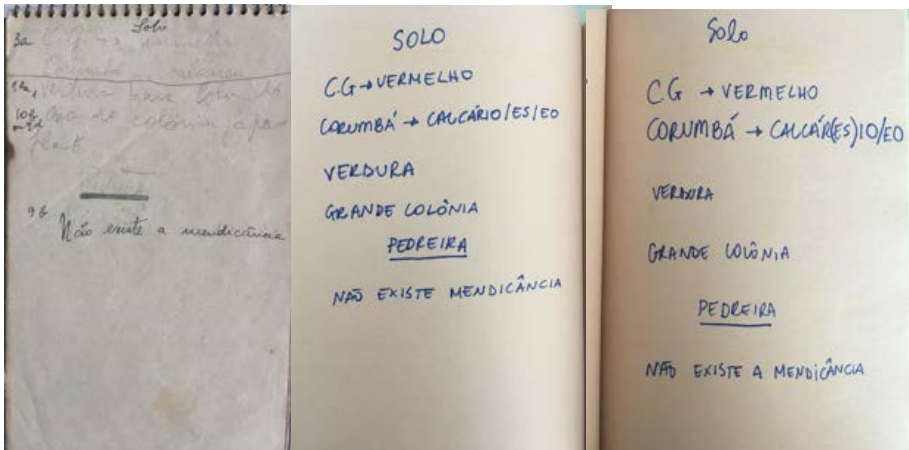 Solo
3a
9a, Verdura
10a
colônia
9b
Não existe a mendicância
SOLO
C.G → VERMELHO
CORUMBÁ → CALCÁRIO/ES/EO
VERDURA
GRANDE COLÔNIA
PEDREIRA
NÃO EXISTE MENDICÂNCIA
Solo
C.G → VERMELHO
CORUMBÁ → CALCÁR(ES)IO/EO
VERDURA
GRANDE COLÔNIA
PEDREIRA
NÃO EXISTE A MENDICÂNCIA